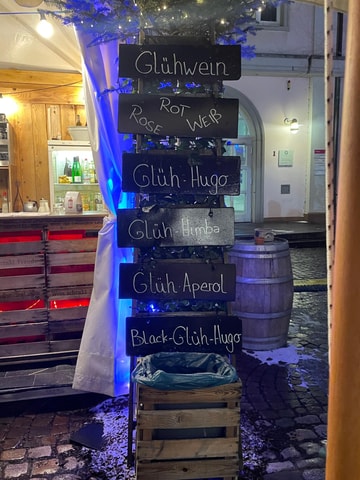 Glühwein
ROSE ROT WEIß
Glüh-Hugo
Glüh-Himba
Glüh-Aperol
Black-Glüh-Hugo